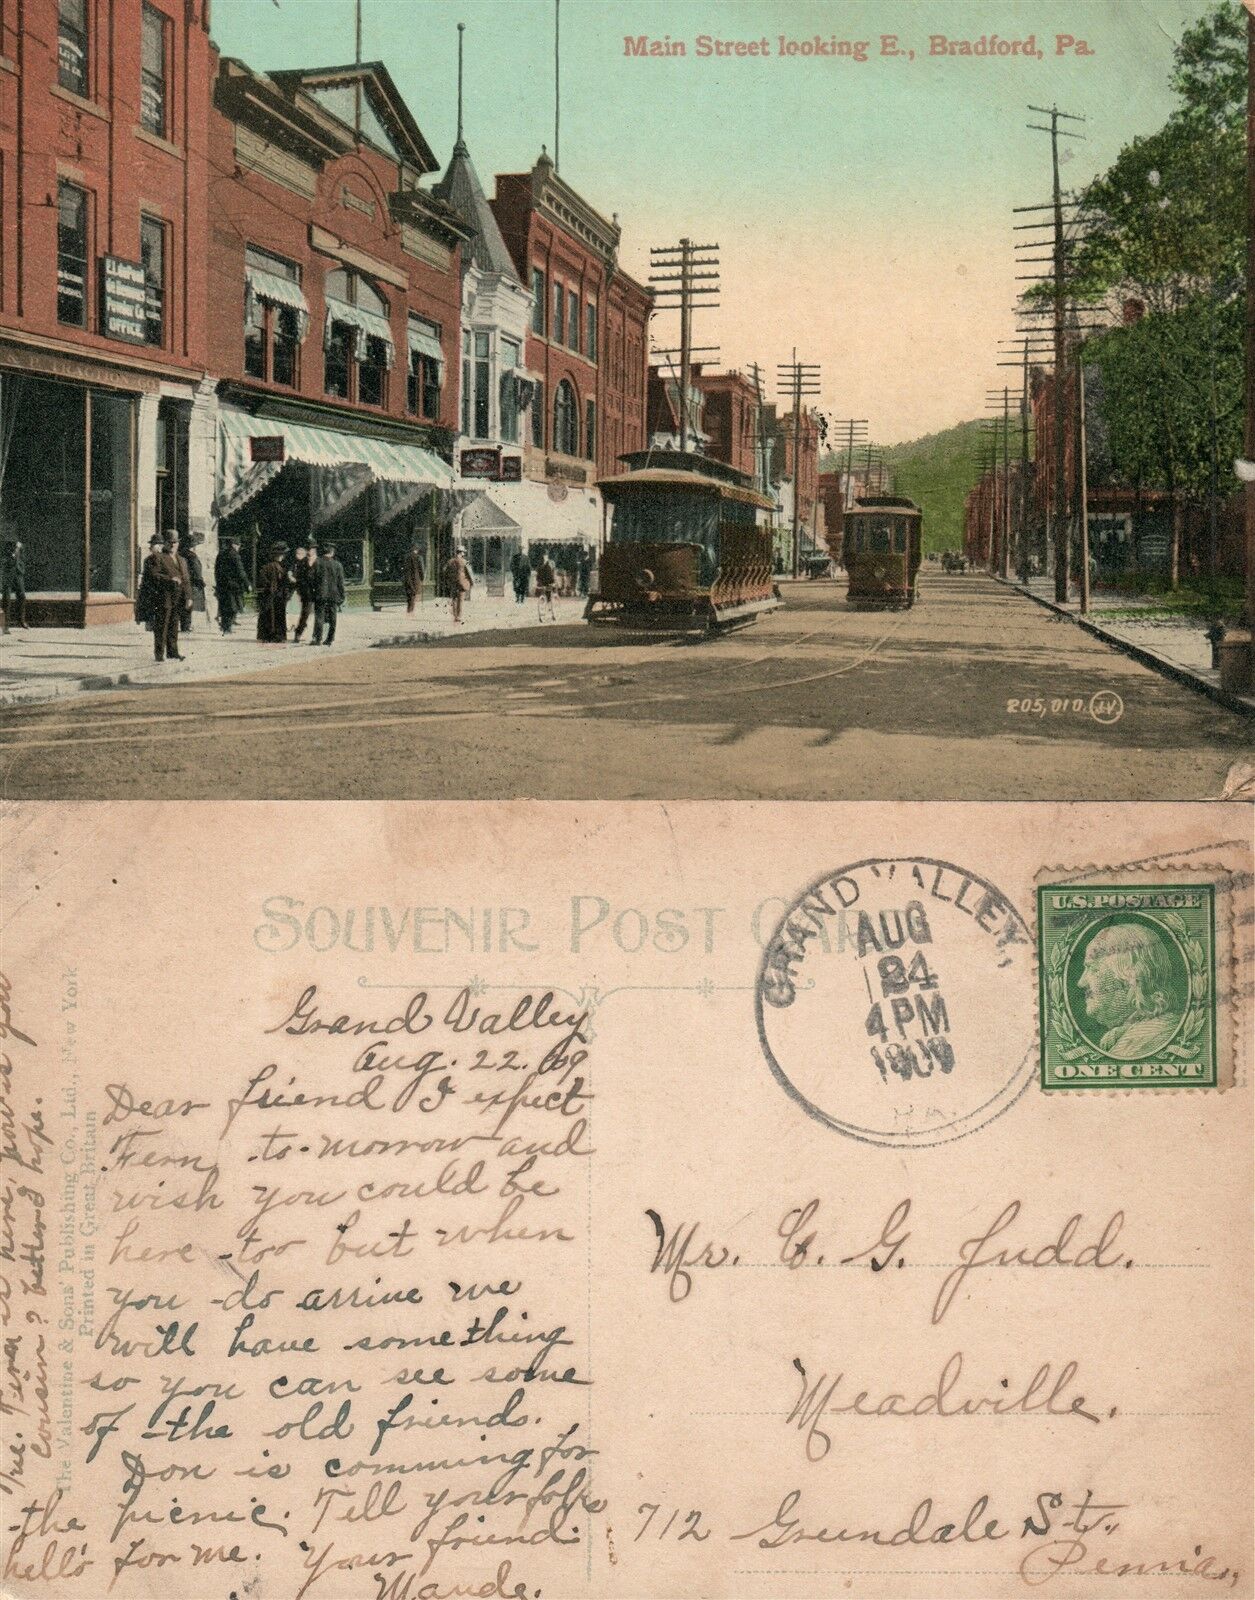 Main Street looking E., Bradford, Pa.
OFFICE.
TRACTION CO.
205,010. JV
SOUVENIR POST CARD
GRAND VALLEY,
AUG
24
4 PM
1909
U.S. POSTAGE
ONE CENT
The Valentine & Sons' Publishing Co., Ltd., New York
Printed in Great Britain
Grand Valley
Aug. 22. 09
Dear friend I expect
Fern to-morrow and
wish you could be
here too but when
you do arrive we
will have something
so you can see some
of the old friends.
Don is comming for
the picnic. Tell your folks
hello for me. Your friend
Maude.
Tue. Fern is here, how is your
cousin? better I hope.
Mr. C. G. Judd.
Meadville.
712 Greendale St.,
Penn'a.,